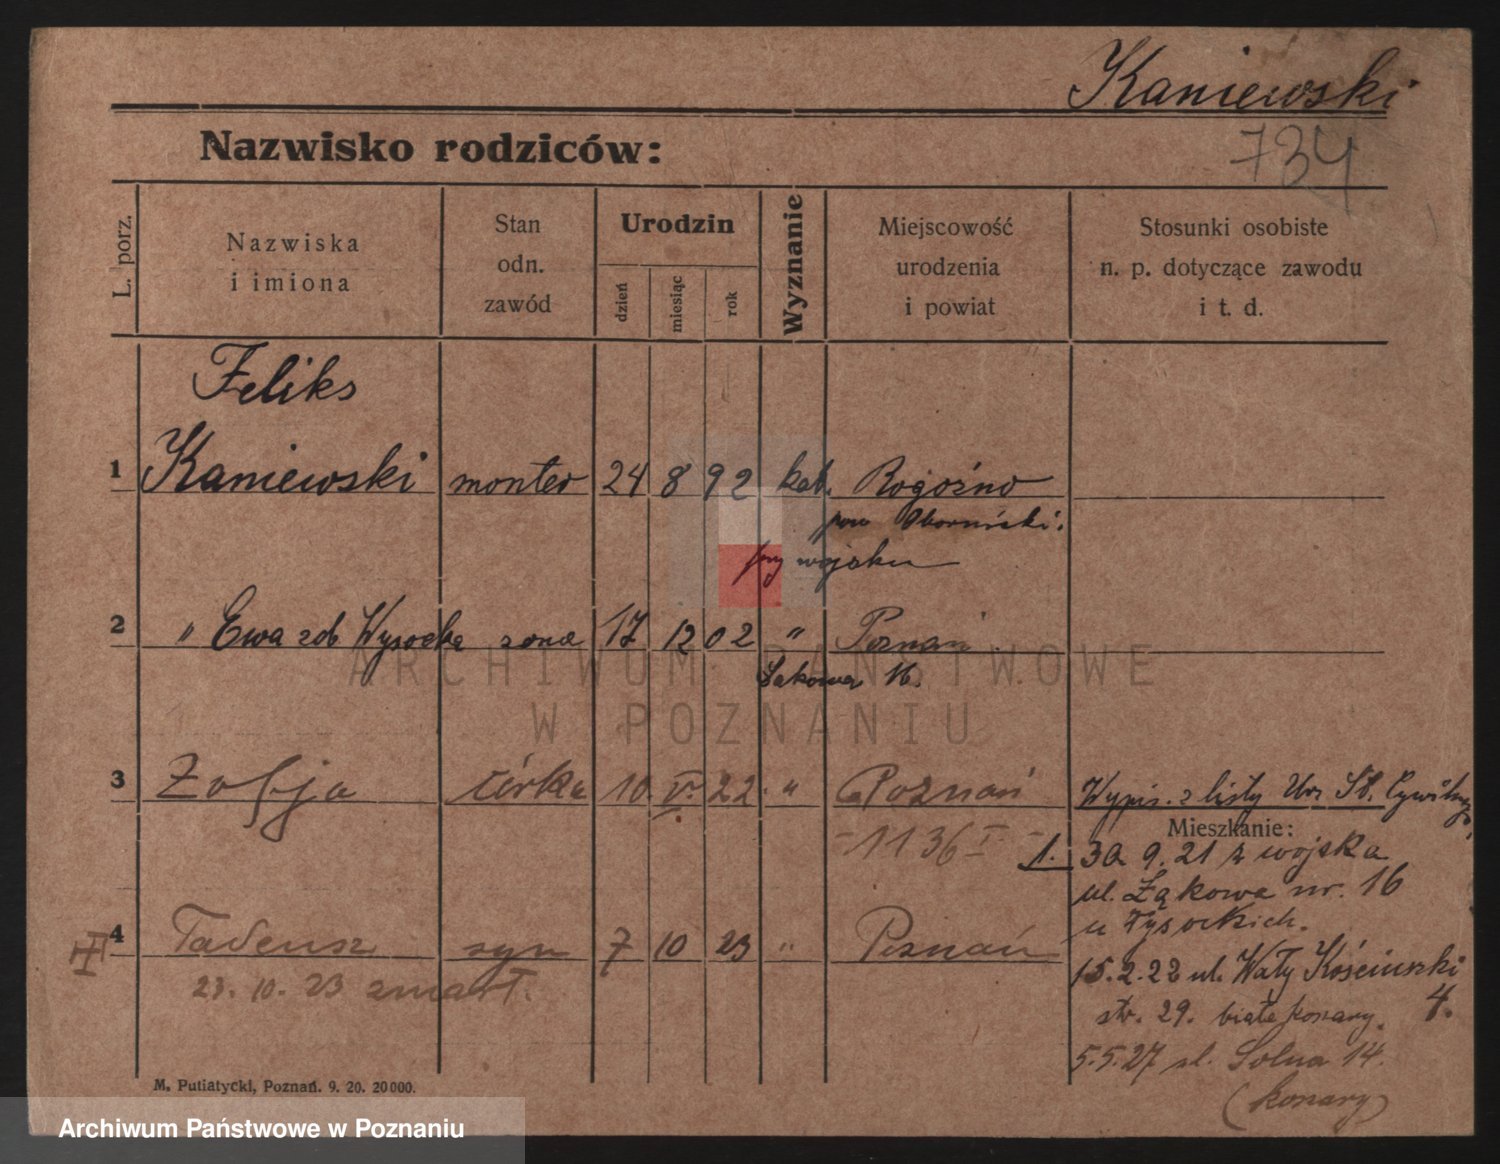 Kaniewski
Nazwisko rodziców:
734
L. porz.
Nazwiska
i imiona
Stan
odn.
zawód
Urodzin
dzień
miesiąc
rok
Wyznanie
Miejscowość
urodzenia
i powiat
Stosunki osobiste
n. p. dotyczące zawodu
i t. d.
Feliks
1 Kaniewski monter 24 8 92 kat. Rogoźno
pow Obornicki.
przy wojsku
2 " Ewa zdb Wysocka żona 17 12 02 " Poznań
Łąkowa 16.
3 Zofja córka 10 V. 22 " Poznań Wypis. z listy Urz. St. Cywilnego
- 1136 I -
Mieszkanie:
1. 30 9. 21 z wojska
ul. Łąkowa nr. 16
u Wysockich.
4 Tadeusz syn 7 10 23 " Poznań
23. 10. 23 zmarł.
15. 2. 22 ul. Wały Kościuszki 4.
str. 29. białe konary.
5. 5. 27 ul. Solna 14.
(konary)
M. Putiatycki, Poznań. 9. 20. 20000.
ARCHIWUM PAŃSTWOWE
W POZNANIU
Archiwum Państwowe w Poznaniu